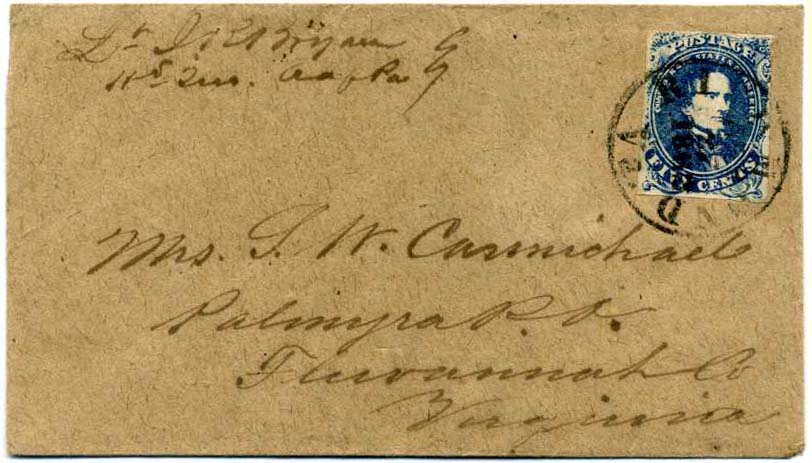 Lt J R Bryan
POSTAGE
CONFEDERATE STATES OF AMERICA
FIVE CENTS
VA
Mrs. S. W. Carmichael
Palmyra P. O.
Fluvannah Co
Virginia